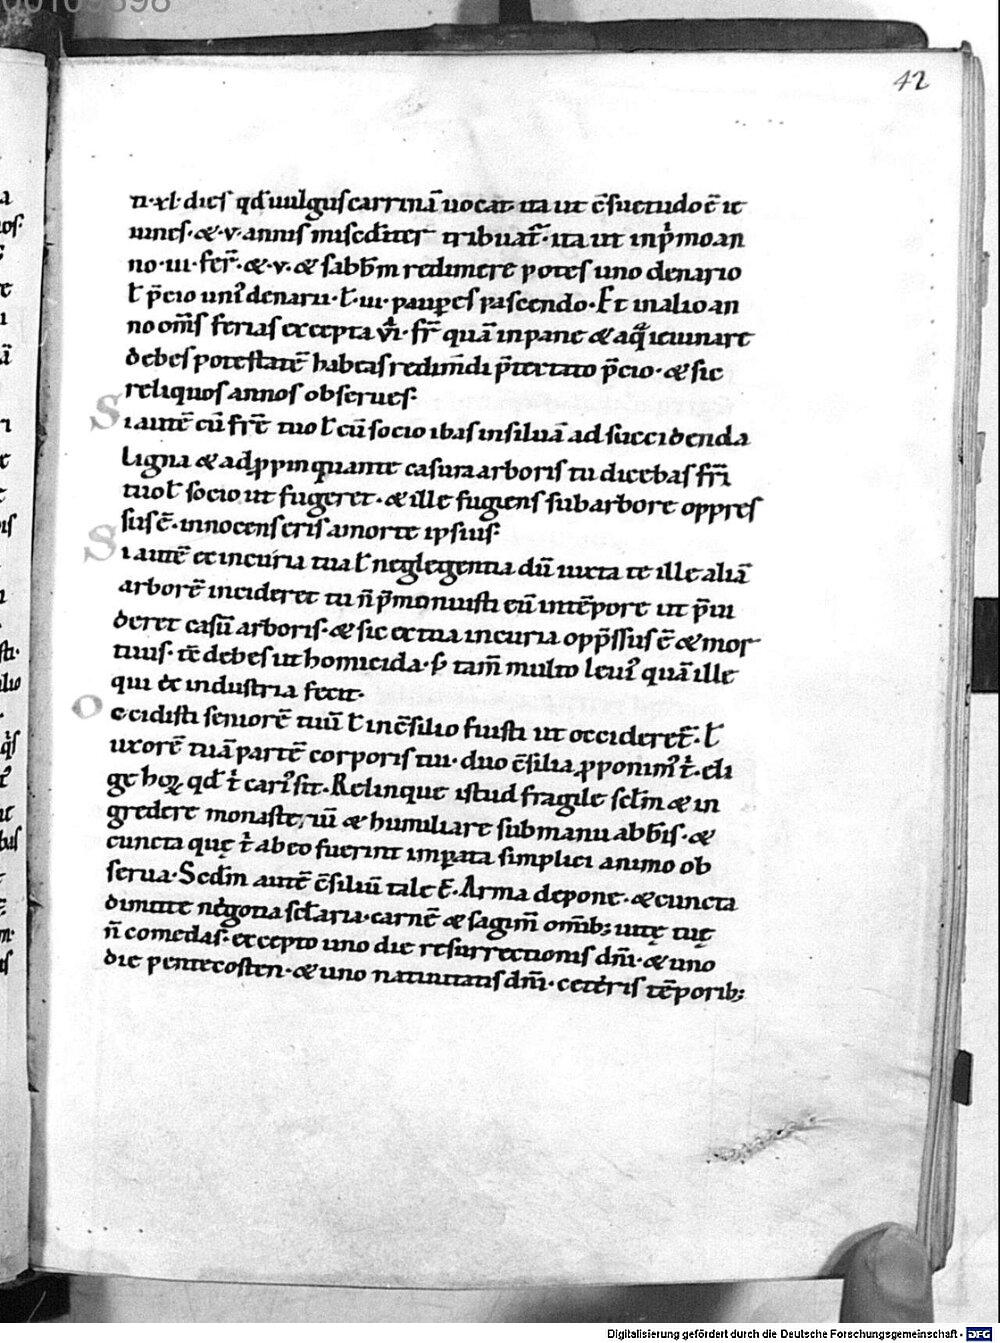 00109898
42
n·xl· dies qd̄ uulgus carrinā uocat ita ut c̄suetudo ē ie
iunes· & ·v· annis misedit̄er tribuat̄· ita ut in p̄mo an
no ·iii· fer̄· & ·v· & sabb̄m redimere potes uno denario
ł p̄cio uni' denarii· ł ·iii· paup̄es pascendo· Et in alio an
no om̄s ferias excepta vi· fr̄ quā in pane & aq̄ ieiunare
debes potestatē habeas redim̄di p̄textato p̄cio· & sic
reliquos annos obserues·
Si autē cū fr̄e tuo ł cū socio ibas in siluā ad succidenda
ligna & adp̱pinquante casura arboris tu dicebas fr̄i
tuo ł socio ut fugeret· & ille fugiens sub arbore oppres
sus ē· innocens eris a morte ipsius·
Si autē ex incuria tua ł neglegentia dū iuxta te ille aliā
arborē incideret tu n̄ p̄monuisti eū in tēpore ut p̄ui
deret casū arboris· & sic ex tua incuria opp̄ssus ē & mor
tuus· te debes ut homicida· s; tam̄ multo leui' quā ille
qui ex industria fecit·
Occidisti seniorē tuū ł in c̄silio fuisti ut occideret̄· ł
uxorē tuā partē corporis tui· duo c̄silia p̱ponim' t̄· eli
ge hoꝝ qd̄ t̄ cari' sit· Relinque istud fragile scl̄m & in
gredere monasteriū & humiliare sub manu abb̄is· &
cuncta quę t̄ ab eo fuerint imp̱ata simplici animo ob
serua· Scd̄m autē c̄siliū tale ē· Arma depone· & cuncta
dimitte negotia scl̄aria· carnē & sagim̄ omib; uitę tuę
n̄ comedas· excepto uno die resurrectionis dn̄i· & uno
die pentecosten· & uno natiuitatis dn̄i· ceteris tēporib;
Digitalisierung gefördert durch die Deutsche Forschungsgemeinschaft - DFG